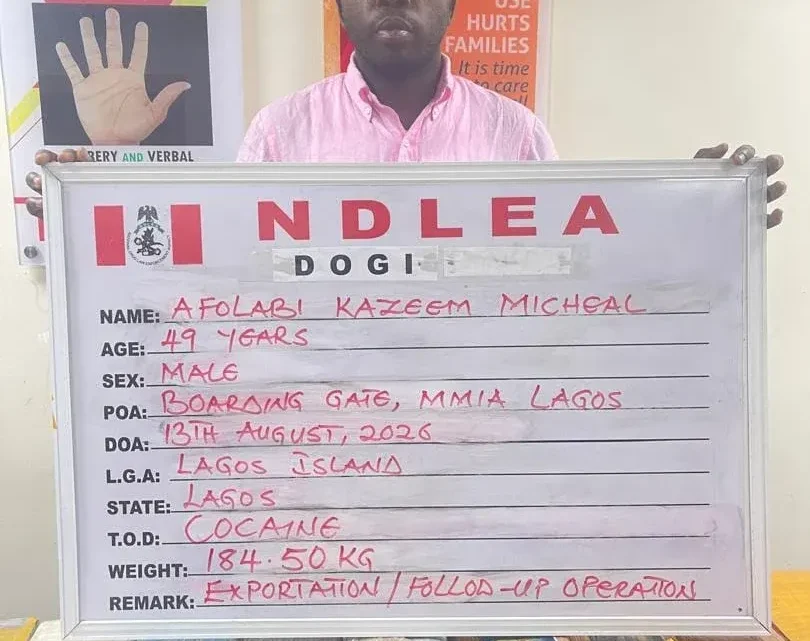 USE
HURTS
FAMILIES
It is time
to care
BERY AND VERBAL
NDLEA
DOGI
NAME: AFOLABI KAZEEM MICHEAL
AGE: 49 YEARS
SEX: MALE
POA: BOARDING GATE, MMIA LAGOS
DOA: 13TH AUGUST, 2026
L.G.A: LAGOS ISLAND
STATE: LAGOS
T.O.D: COCAINE
WEIGHT: 184.50 KG
REMARK: EXPORTATION / FOLLOD-UP OPERATION